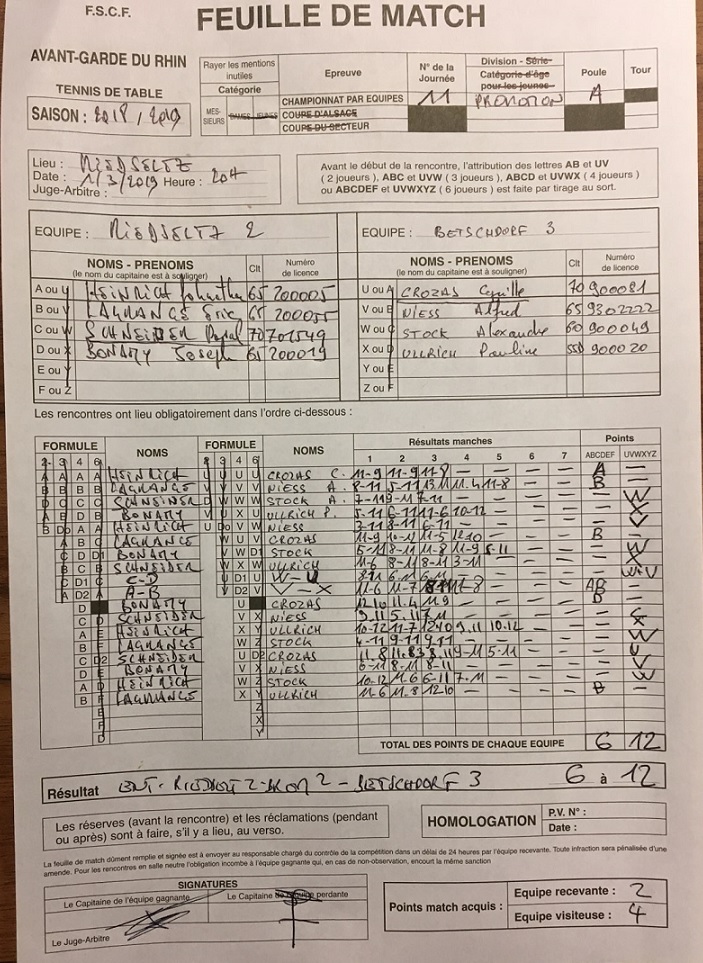 F.S.C.F.
FEUILLE DE MATCH
AVANT-GARDE DU RHIN
TENNIS DE TABLE
SAISON : 2018 / 2019
Rayer les mentions inutiles
Catégorie
MES-SIEURS DAMES JEUNES
Epreuve
CHAMPIONNAT PAR EQUIPES
COUPE D'ALSACE
COUPE DU SECTEUR
N° de la Journée
11
Division - Série-
Catégorie d'âge
pour les jeunes
PROMOTION
Poule
A
Tour
Lieu : RIEDSELTZ
Date : 1/3/2019 Heure : 20H
Juge-Arbitre :
Avant le début de la rencontre, l'attribution des lettres AB et UV
( 2 joueurs ), ABC et UVW ( 3 joueurs ), ABCD et UVWX ( 4 joueurs )
ou ABCDEF et UVWXYZ ( 6 joueurs ) est faite par tirage au sort.
EQUIPE : RIEDSELTZ 2
EQUIPE : BETSCHDORF 3
NOMS - PRENOMS (le nom du capitaine est à souligner) Clt Numéro de licence
NOMS - PRENOMS (le nom du capitaine est à souligner) Clt Numéro de licence
A ou U HEINRICH 65 200005
U ou A CROZAS 70 900081
B ou V LAGRANGE Eric 65
V ou B NIESS Alfred 65 9302222
C ou W SCHNEIDER 70 701549
W ou C STOCK Alexandre 60 900049
D ou X BONAMY Joseph 65 200019
X ou D ULLRICH Pauline 55 900020
E ou Y
Y ou E
F ou Z
Z ou F
Les rencontres ont lieu obligatoirement dans l'ordre ci-dessous :
FORMULE NOMS FORMULE NOMS Résultats manches Points
2 3 4 6 2 3 4 6 1 2 3 4 5 6 7 ABCDEF UVWXYZ
A A A A HEINRICH U U U U CROZAS C. 11-9 11-9 11-8 — — — — A —
B B B B LAGRANGE V V V V NIESS A. 8-11 5-11 13-11 11-4 11-8 — — B —
SCHNEIDER STOCK A. 7-11 9-11 7-11 — — — — — W
BONAMY ULLRICH P. 5-11 6-11 11-6 10-12 — — — — X
HEINRICH NIESS 3-11 8-11 6-11 — — — — — V
LAGRANGE CROZAS 11-9 10-12 11-5 12-10 — — — B —
BONAMY STOCK 5-11 8-11 11-9 5-11 — — — W
SCHNEIDER ULLRICH 11-6 8-11 8-11 3-11 — — — — X
C-D W-U 6-11 6-11 — — — — —
A-B V-X 11-6 11-7 — — — AB —
BONAMY CROZAS 12-10 11-4 11-9 — — — — D —
SCHNEIDER NIESS 9-11 5-11 7-11 — — — — —
HEINRICH ULLRICH 10-12 11-7 12-10 9-11 10-12 — — — X
LAGRANGE STOCK 4-11 9-11 9-11 — — — — — W
SCHNEIDER CROZAS 11-8 9-11 5-11 — — — U
BONAMY NIESS 8-11 8-11 — — — — — V
HEINRICH STOCK 10-12 11-6 6-11 7-11 — — — — W
LAGRANGE ULLRICH 11-6 11-8 12-10 — — — — B —
TOTAL DES POINTS DE CHAQUE EQUIPE 6 12
Résultat 2 - BETSCHDORF 3 6 à 12
Les réserves (avant la rencontre) et les réclamations (pendant
ou après) sont à faire, s'il y a lieu, au verso.
HOMOLOGATION
P.V. N° :
Date :
La feuille de match dûment remplie et signée est à envoyer au responsable chargé du contrôle de la compétition dans un délai de 24 heures par l'équipe recevante. Toute infraction sera pénalisée d'une
amende. Pour les rencontres en salle neutre l'obligation incombe à l'équipe gagnante qui, en cas de non-observation, encourt la même sanction
SIGNATURES
Le Capitaine de l'équipe gagnante
Le Capitaine de l'équipe perdante
Le Juge-Arbitre
Points match acquis :
Equipe recevante : 2
Equipe visiteuse : 4